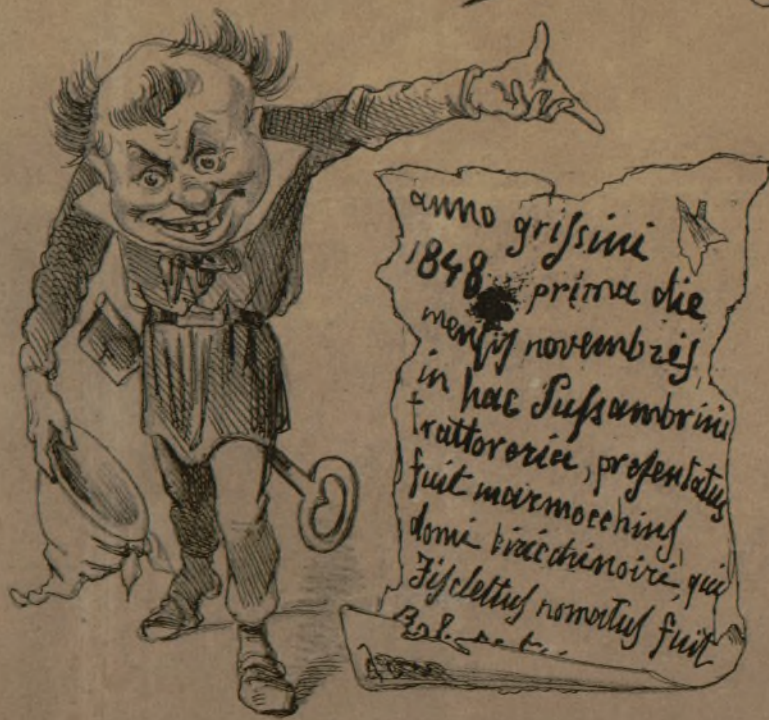 anno griſsini
1848 prima die
menſiſ novembreſ,
in hac Puſsambrini
trattoreria, preſentatus
fuit marmocchinuſ
domi biricchinoire, qui
Fiſclettuſ nomatuſ fuit